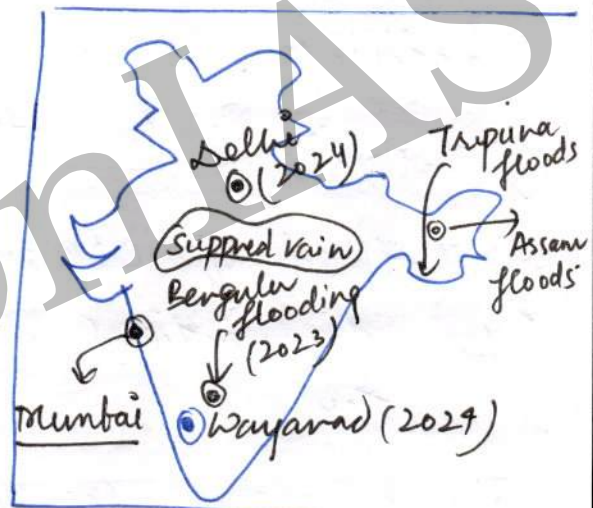 Delhi
(2024)
Tripura
floods
Assam
floods
Suppred rain
Bengulur
flooding
(2023)
Mumbai
Wayanad (2024)
nIAS